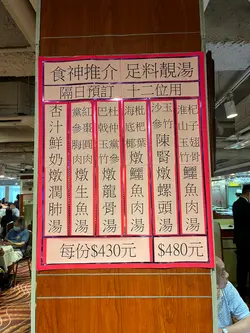 食神推介 足料靚湯
隔日預訂 十二位用
杏汁鮮奶燉潤肺湯
肉紅棗圓肉燉生魚湯
巴戟玉竹杜仲黨參燉龍骨湯
海底椰枇杷葉燉鱷魚肉湯
沙參玉竹陳腎燉螺頭湯
淮山玉竹杞子翅骨鱷魚肉湯
每份$430元
$480元